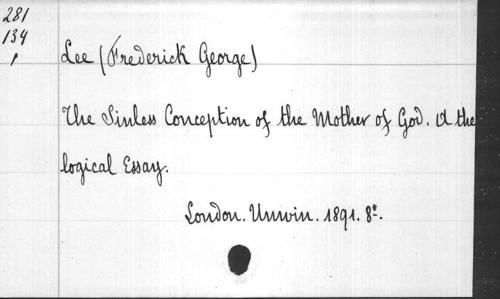 281
134
1
Lee (Frederick George)
The Sinless Conception of the Mother of God. A the
logical Essay.
London. Unwin. 1891. 8º.